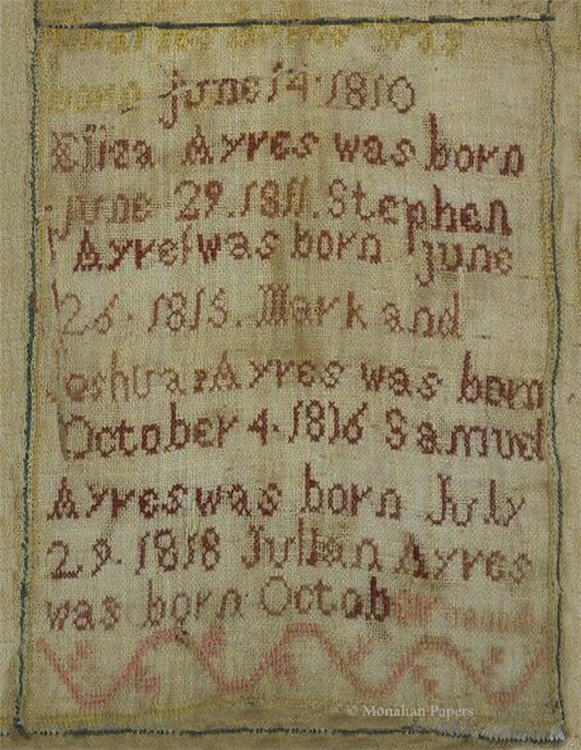 Ayres was
born june 14 1810
Eliza Ayres was born
june 29.1811.Stephen
Ayres was born june
26.1815.Mark and
Joshua Ayres was born
October 4.1816 Samuel
Ayres was born July
29.1818 Julian Ayres
was born Octob
© Monahan Papers